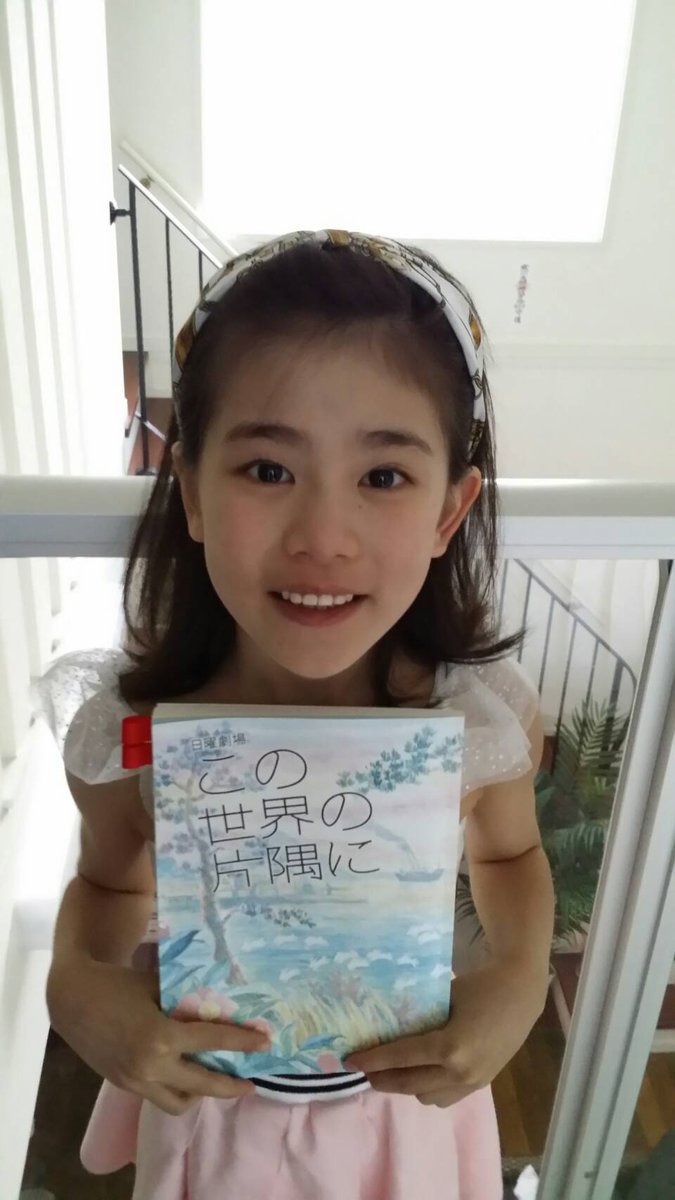 日曜劇場
この
世界の
片隅に